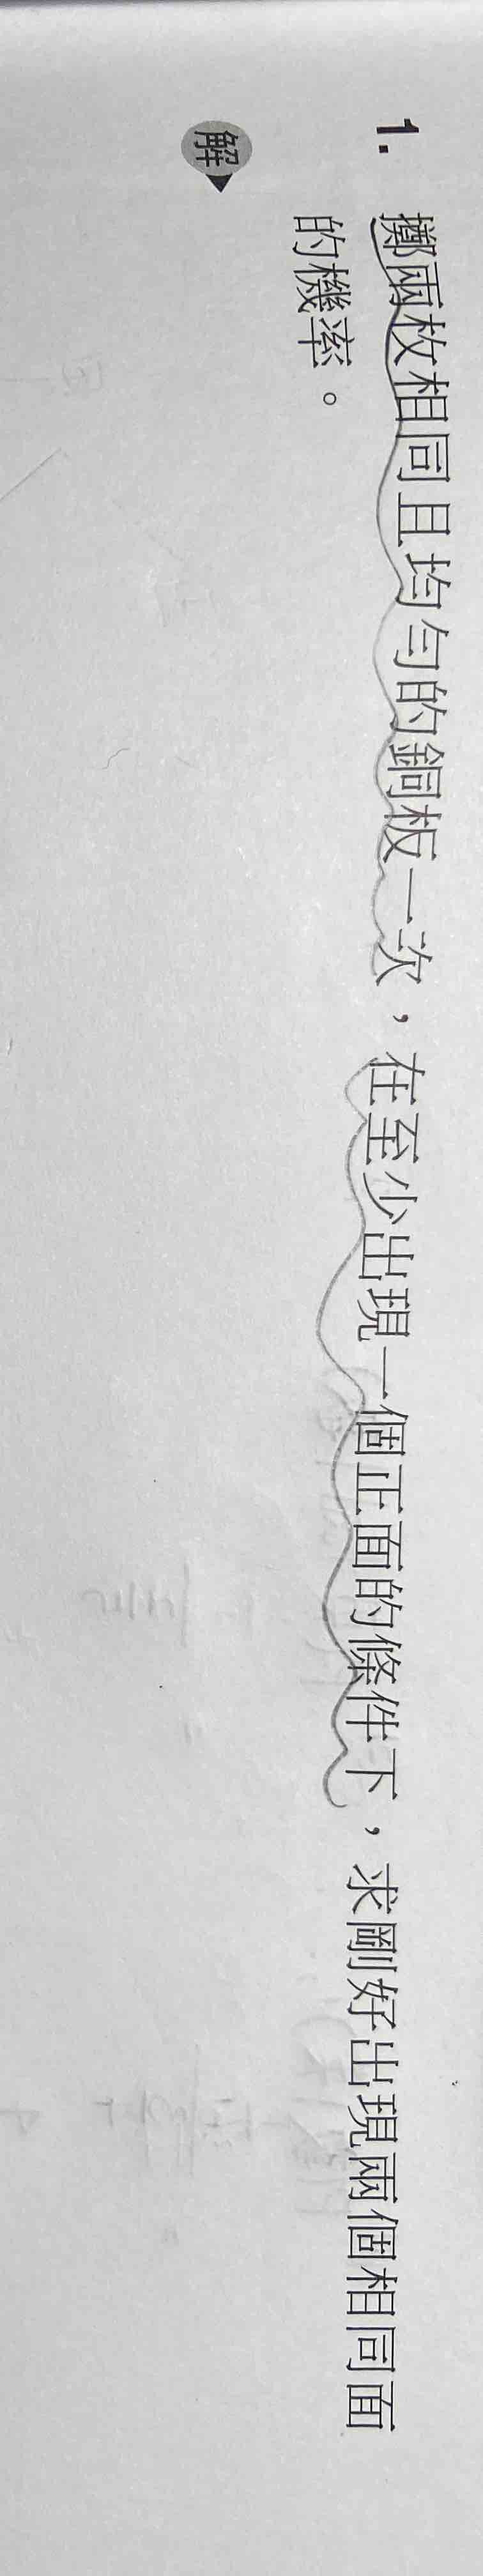 1. 擲兩枚相同且均勻的銅板一次，在至少出現一個正面的條件下，求剛好出現兩個相同面
的機率。
解